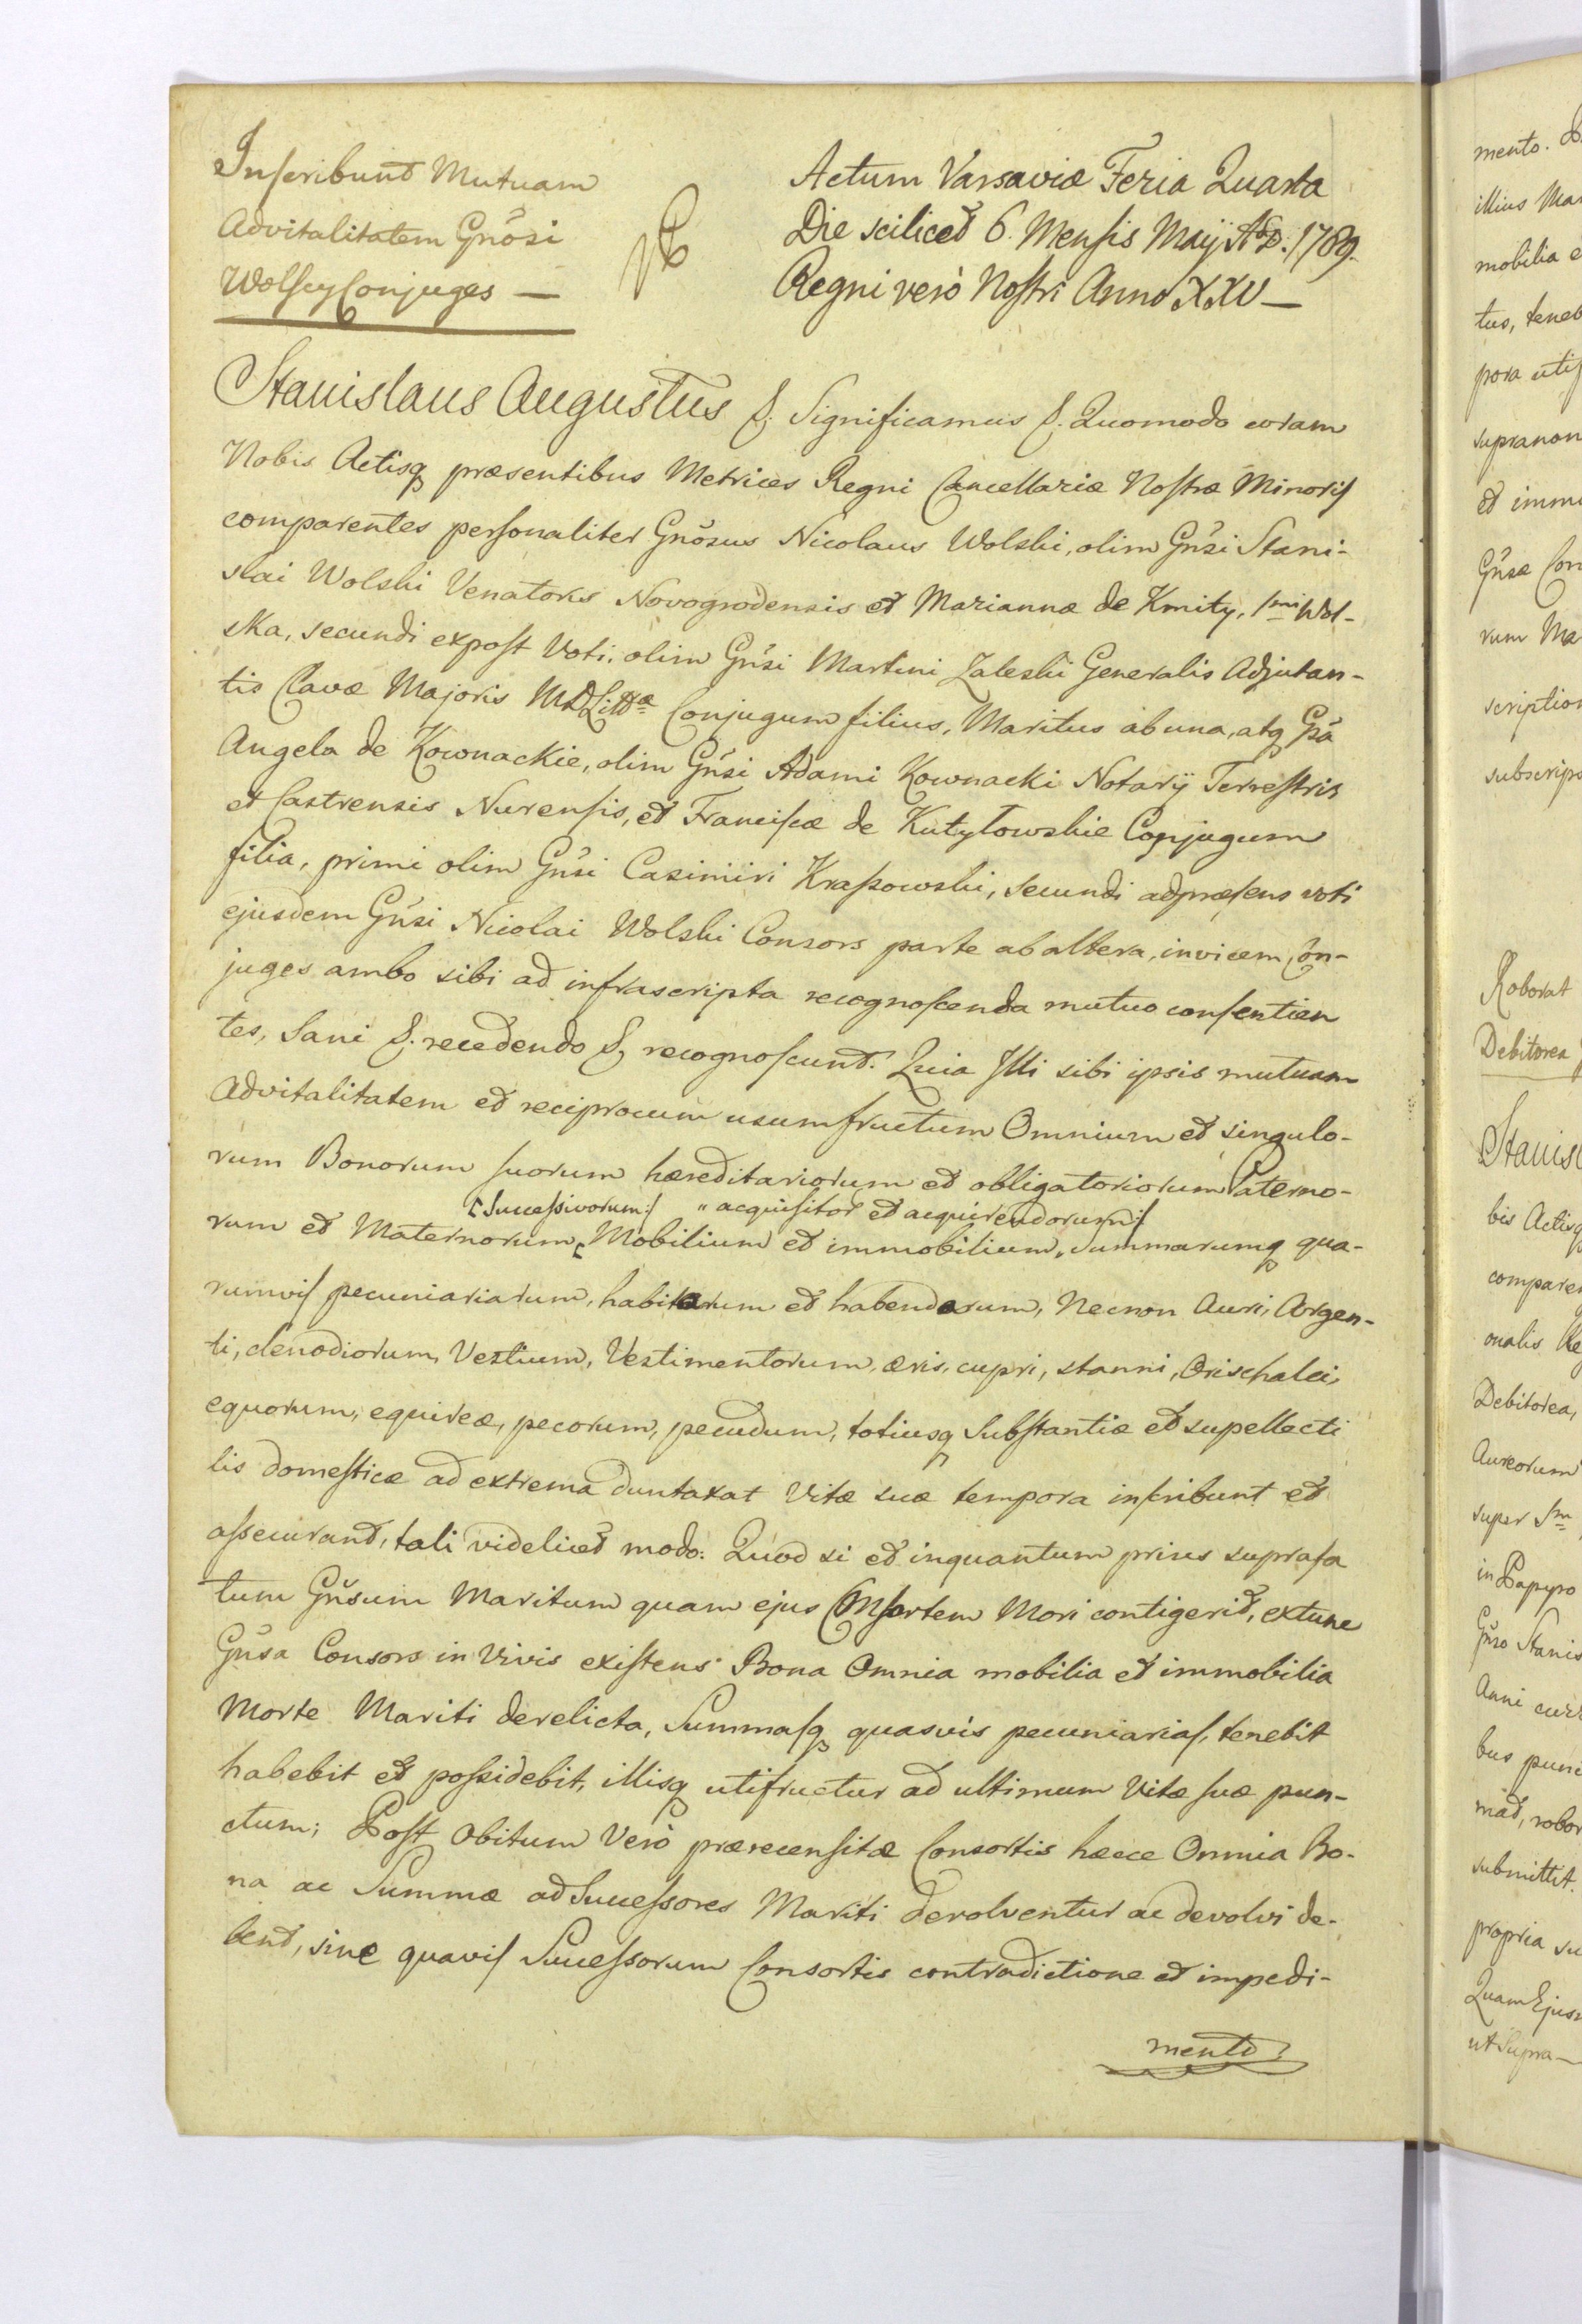 Inscribunt Mutuam
Advitalitatem Gñosi
Wolscy Conjuges —
Actum Varsaviæ Feria Quarta
Die scilicet 6. Mensis Maij A.D. 1789.
Regni verò Nostri Anno XXV —
Stanislaus Augustus &. Significamus &. Quomodo coram
Nobis Actisq præsentibus Metrices Regni Cancellariæ Nostræ Minoris
comparentes personaliter Gñosus Nicolaus Wolski, olim Gñsi Stani-
slai Wolski Venatoris Novogrodensis et Mariannæ de Kmity, 1mi Wol-
ska, secundi expost Voti, olim Gñsi Martini Zaleski Generalis Adjutan-
tis Clavæ Majoris M.D.Litt.æ Conjugum filius, Maritus ab una, atq Gsa
Angela de Kownackie, olim Gñsi Adami Kownacki Notarij Terrestris
et Castrensis Nurensis, et Franciscæ de Kutyłowskie Conjugum
filia, primi olim Gñsi Casimiri Kraszowski, secundi adpræsens voti
ejusdem Gñsi Nicolai Wolski Consors parte ab altera, invicem Con-
juges ambo sibi ad infrascripta recognoscenda mutuo consentien
tes, Sani &. recedendo &. recognoscunt. Quia Illi sibi ipsis mutuam
Advitalitatem et reciprocum usumfructum Omnium et singulo-
rum Bonorum suorum hæreditariorum et obligatoriorum Paterno-
[Successivorum:/ " acquisitor et acquirendorum:/
rum et Maternorum, Mobilium et immobilium, Summarumq qua-
rumvis pecuniariarum, habitarum et habendarum, Necnon Auri, Argen-
ti, clenodiorum, Vestium, Vestimentorum, æris, cupri, stanni, Orischalci,
equorum, equireæ, pecorum, pecudum, totiusq Substantiæ et supellecti
lis domesticæ ad extrema duntaxat Vitæ suæ tempora inscribunt et
assecurant, tali videlicet modo: Quod si et inquantum prius suprafa
tum Gñsum Maritum quam ejus Consortem Mori contigerit, extunc
Gñsa Consors in Vivis existens Bona Omnia mobilia et immobilia
Morte Mariti derelicta, Summasq quasvis pecuniarias, tenebit
habebit et possidebit, illisq utifructur ad ultimum Vitæ suæ pun-
ctum; Post Obitum Verò præecensitæ Consortis hæce Omnia Bo-
na ac Summæ ad Successores Mariti devolventur ac devolvi de-
bent, sine quavis Successorum Consortis contradictione et impedi-
mento
mento.
illius
mobilia
tus,
pora
et
Gñsæ
rum
Roborat
Debitorea
bis Actisq
onalis
Debitorea,
Aureorum
super
in Papyro
Gñso Stanis
Anni
bus
submittit.
propria
Quam Ejus
ut Supra —